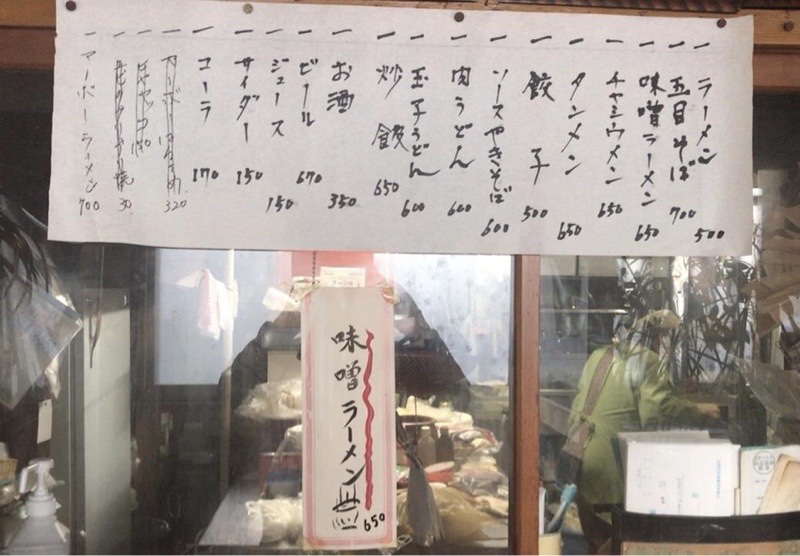 一 ラーメン 500
一 五目そば 700
一 味噌ラーメン 650
一 チャシウメン 650
一 タンメン 650
一 餃子 500
一 ソースやきそば 600
一 肉うどん 600
一 玉子うどん 600
一 炒飯 650
一 お酒 350
一 ビール 670
一 ジュース 150
一 サイダー 150
一 コーラ 170
一 320
一 30
一 マーボーラーメン 700
味噌ラーメン 650